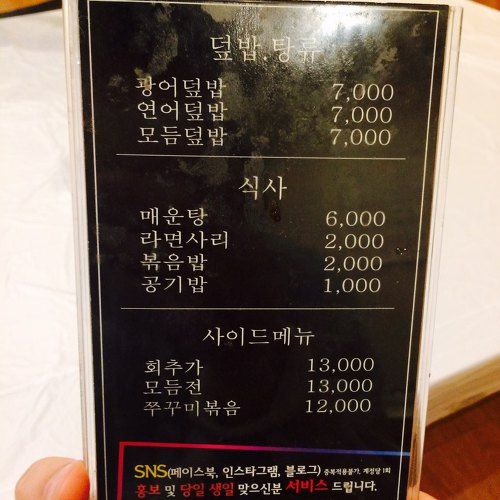 덮밥.탕류
광어덮밥 7,000
연어덮밥 7,000
모듬덮밥 7,000
식사
매운탕 6,000
라면사리 2,000
볶음밥 2,000
공기밥 1,000
사이드메뉴
회추가 13,000
모듬전 13,000
쭈꾸미볶음 12,000
SNS(페이스북, 인스타그램, 블로그) 중복적용불가, 계정당 1회
홍보 및 당일 생일 맞으신분 서비스 드립니다.